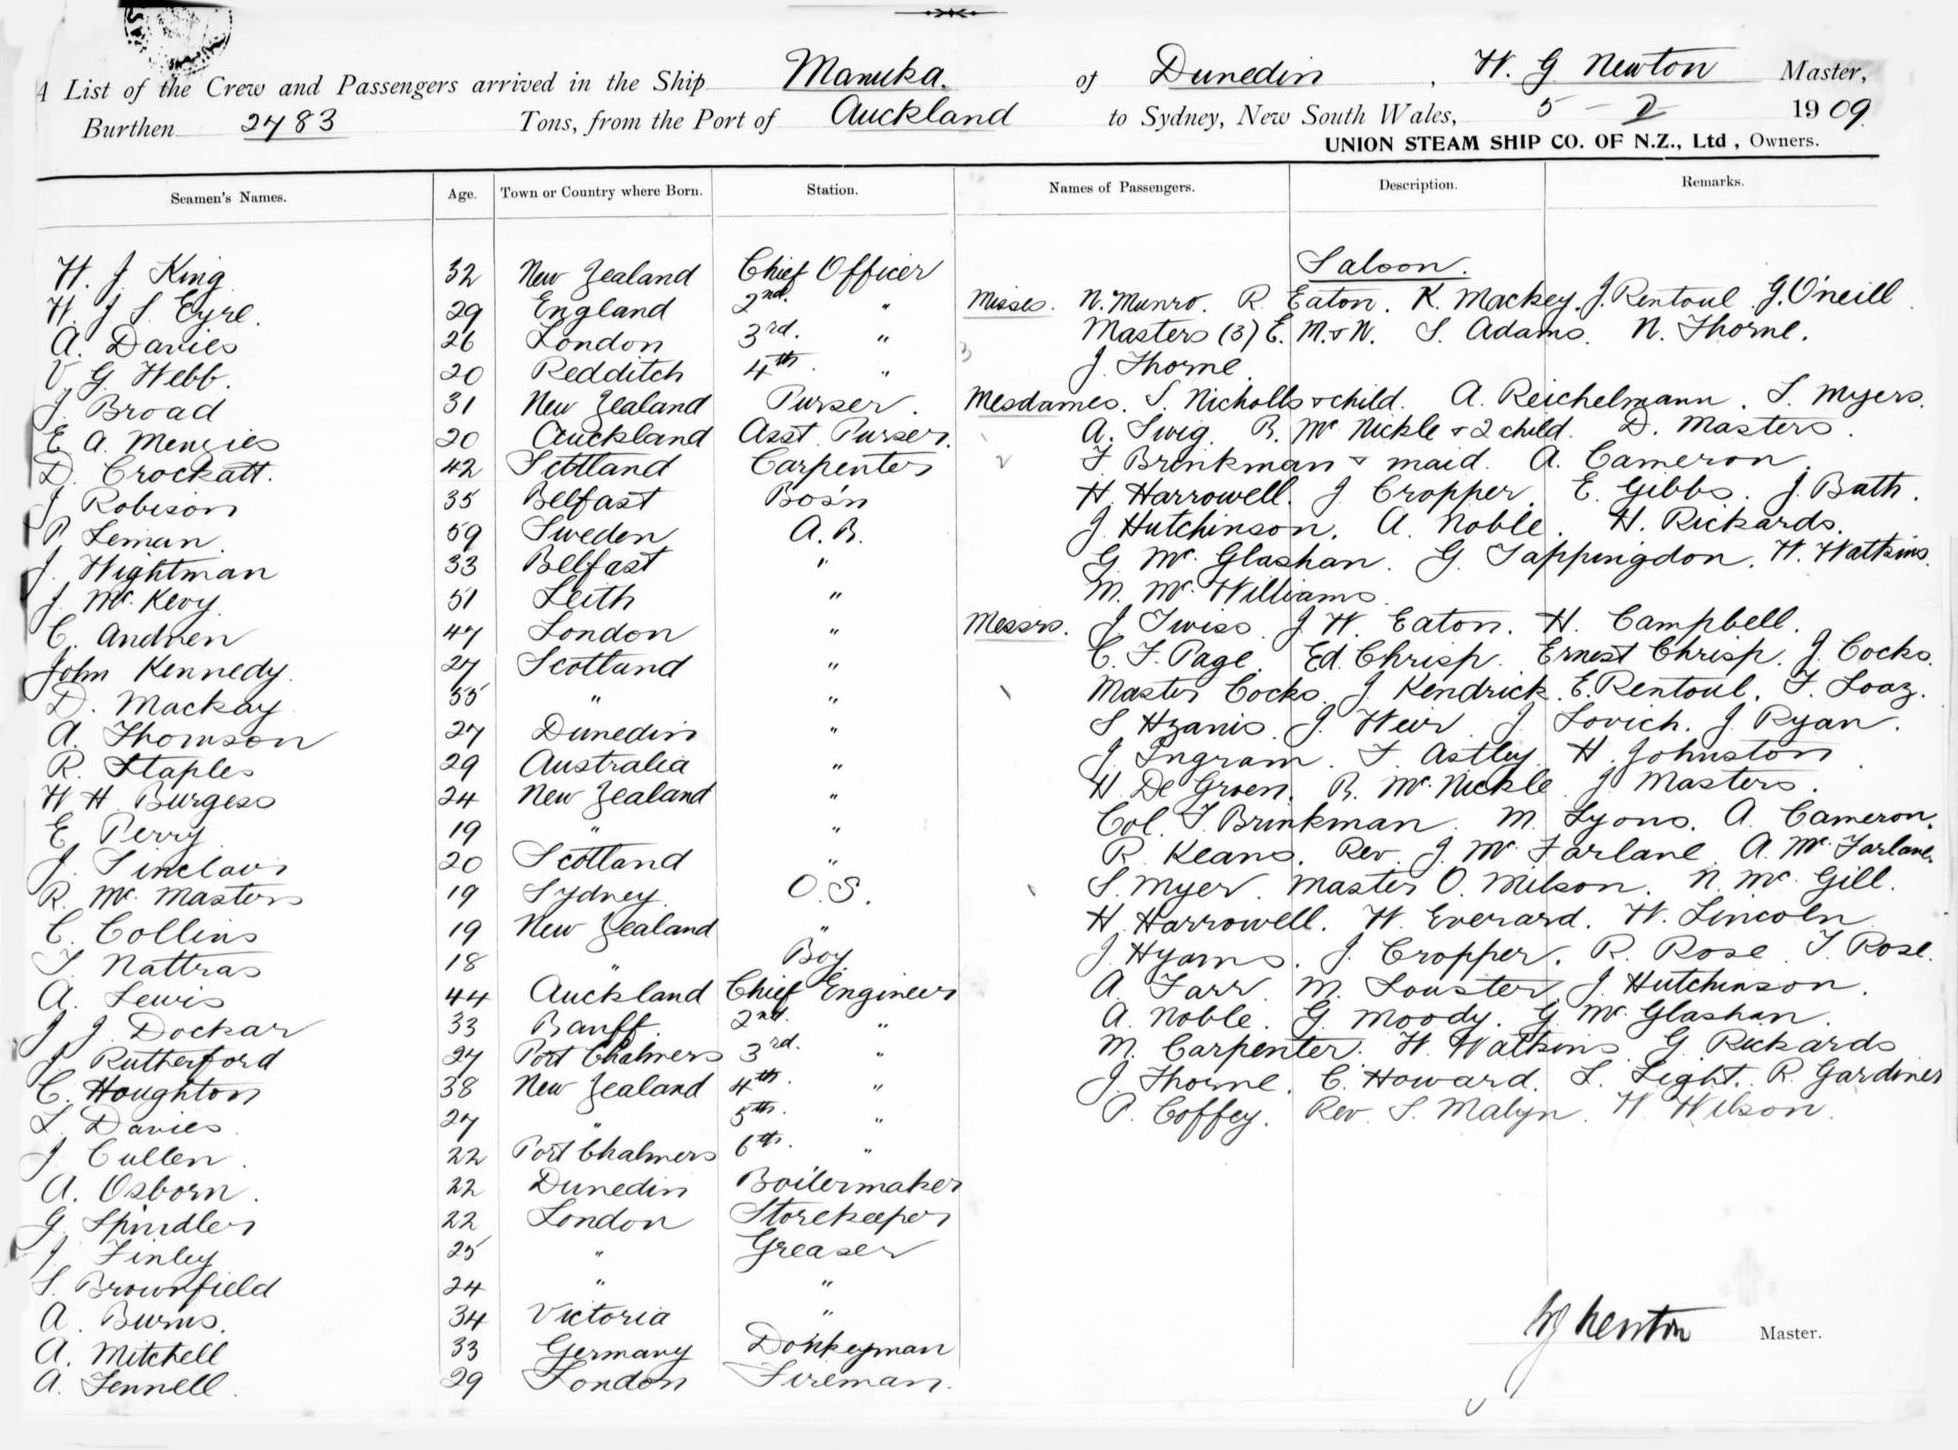 A List of the Crew and Passengers arrived in the Ship Manuka. of Dunedin, W. G Newton Master,
Burthen 2783 Tons, from the Port of Auckland to Sydney, New South Wales, 5 - 2 1909
UNION STEAM SHIP CO. OF N.Z., Ltd, Owners.
Seamen's Names. Age. Town or Country where Born. Station. Names of Passengers. Description. Remarks.
H. J. King 32 New Zealand Chief Officer
H. J S. Eyre. 29 England 2nd. "
A. Davies 26 London 3rd. "
V. G. Webb. 20 Redditch 4th. "
J. Broad 31 New Zealand Purser.
E A. Menzies 20 Auckland Asst Purser.
D. Crockatt. 42 Scotland Carpenter
J Robison 35 Belfast Bos'n
P Leman. 59 Sweden A.B.
J. Wightman 33 Belfast "
J. Mc Kevy 51 Leith "
C. Andren 47 London "
John Kennedy. 27 Scotland "
D. Mackay 55 " "
A. Thomson 27 Dunedin "
R. Staples 29 Australia "
W H. Burgess 24 New Zealand "
E Perry 19 " "
J. Sinclair 20 Scotland "
R. Mc Masters 19 Sydney. O.S.
C. Collins 19 New Zealand "
T. Nattras 18 " Boy
A. Lewis 44 Auckland Chief Engineer
J J. Dockar 33 Banff. 2nd. "
J Rutherford 27 Port Chalmers 3rd. "
C. Houghton 38 New Zealand 4th. "
L. Davies. 27 " 5th. "
J Cullen. 22 Port Chalmers 6th. "
A. Osborn. 22 Dunedin Boilermaker
G. Spindler 22 London Storekeeper
J. Finley 25 " Greaser
S. Brownfield 24 " "
A. Burns. 34 Victoria "
A. Mitchell 33 Germany Donkeyman
A. Fennell. 29 London Fireman.
Saloon.
Misses. N. Munro. R. Eaton. K. Mackey. J. Rentoul. G. O'neill.
Masters (3) E. M. & N. S. Adams. N. Thorne.
J. Thorne.
Mesdames. S. Nicholls & child. A. Reichelmann. S. Myers.
A. Swig. B. Mc Nickle & 2 child. D. Masters.
F Brinkman & maid. A. Cameron.
H. Harrowell. J Cropper. E. Gibbs. J. Bath.
J. Hutchinson. A. Noble. H. Rickards.
G Mc Glashan. G. Tappingdon. W. Watkins.
M. Mc Williams
Messrs. J Twiss. J W. Eaton. H. Campbell.
C. F. Page. Ed. Chrisp. Ernest Chrisp. J. Cocks.
Master Cocks. J. Kendrick. E. Rentoul. F. Loaz.
J. Weir. J Lovich. J Ryan.
J. Ingram. F. Astley. H. Johnston.
H De Groen. B. Mc Nickle. J Masters.
Col. F. Brinkman. M. Lyons. A. Cameron.
R. Keans. Rev. J. Mc Farlane. A. Mc Farlane.
S. Myer. Master O. Milson. N. Mc Gill.
H. Harrowell. W. Everard. W. Lincoln
J. Hyams. J. Cropper. R. Rose. T Rose.
A. Farr. M. Louster. J. Hutchinson.
A. Noble. G. Moody. G Mc Glashan.
M. Carpenter. W. Watkins. G Rickards
J. Thorne. C. Howard. L. Light. R. Gardiner
P. Coffey. Rev. S. Malyn. W. Wilson.
WG Newton Master.